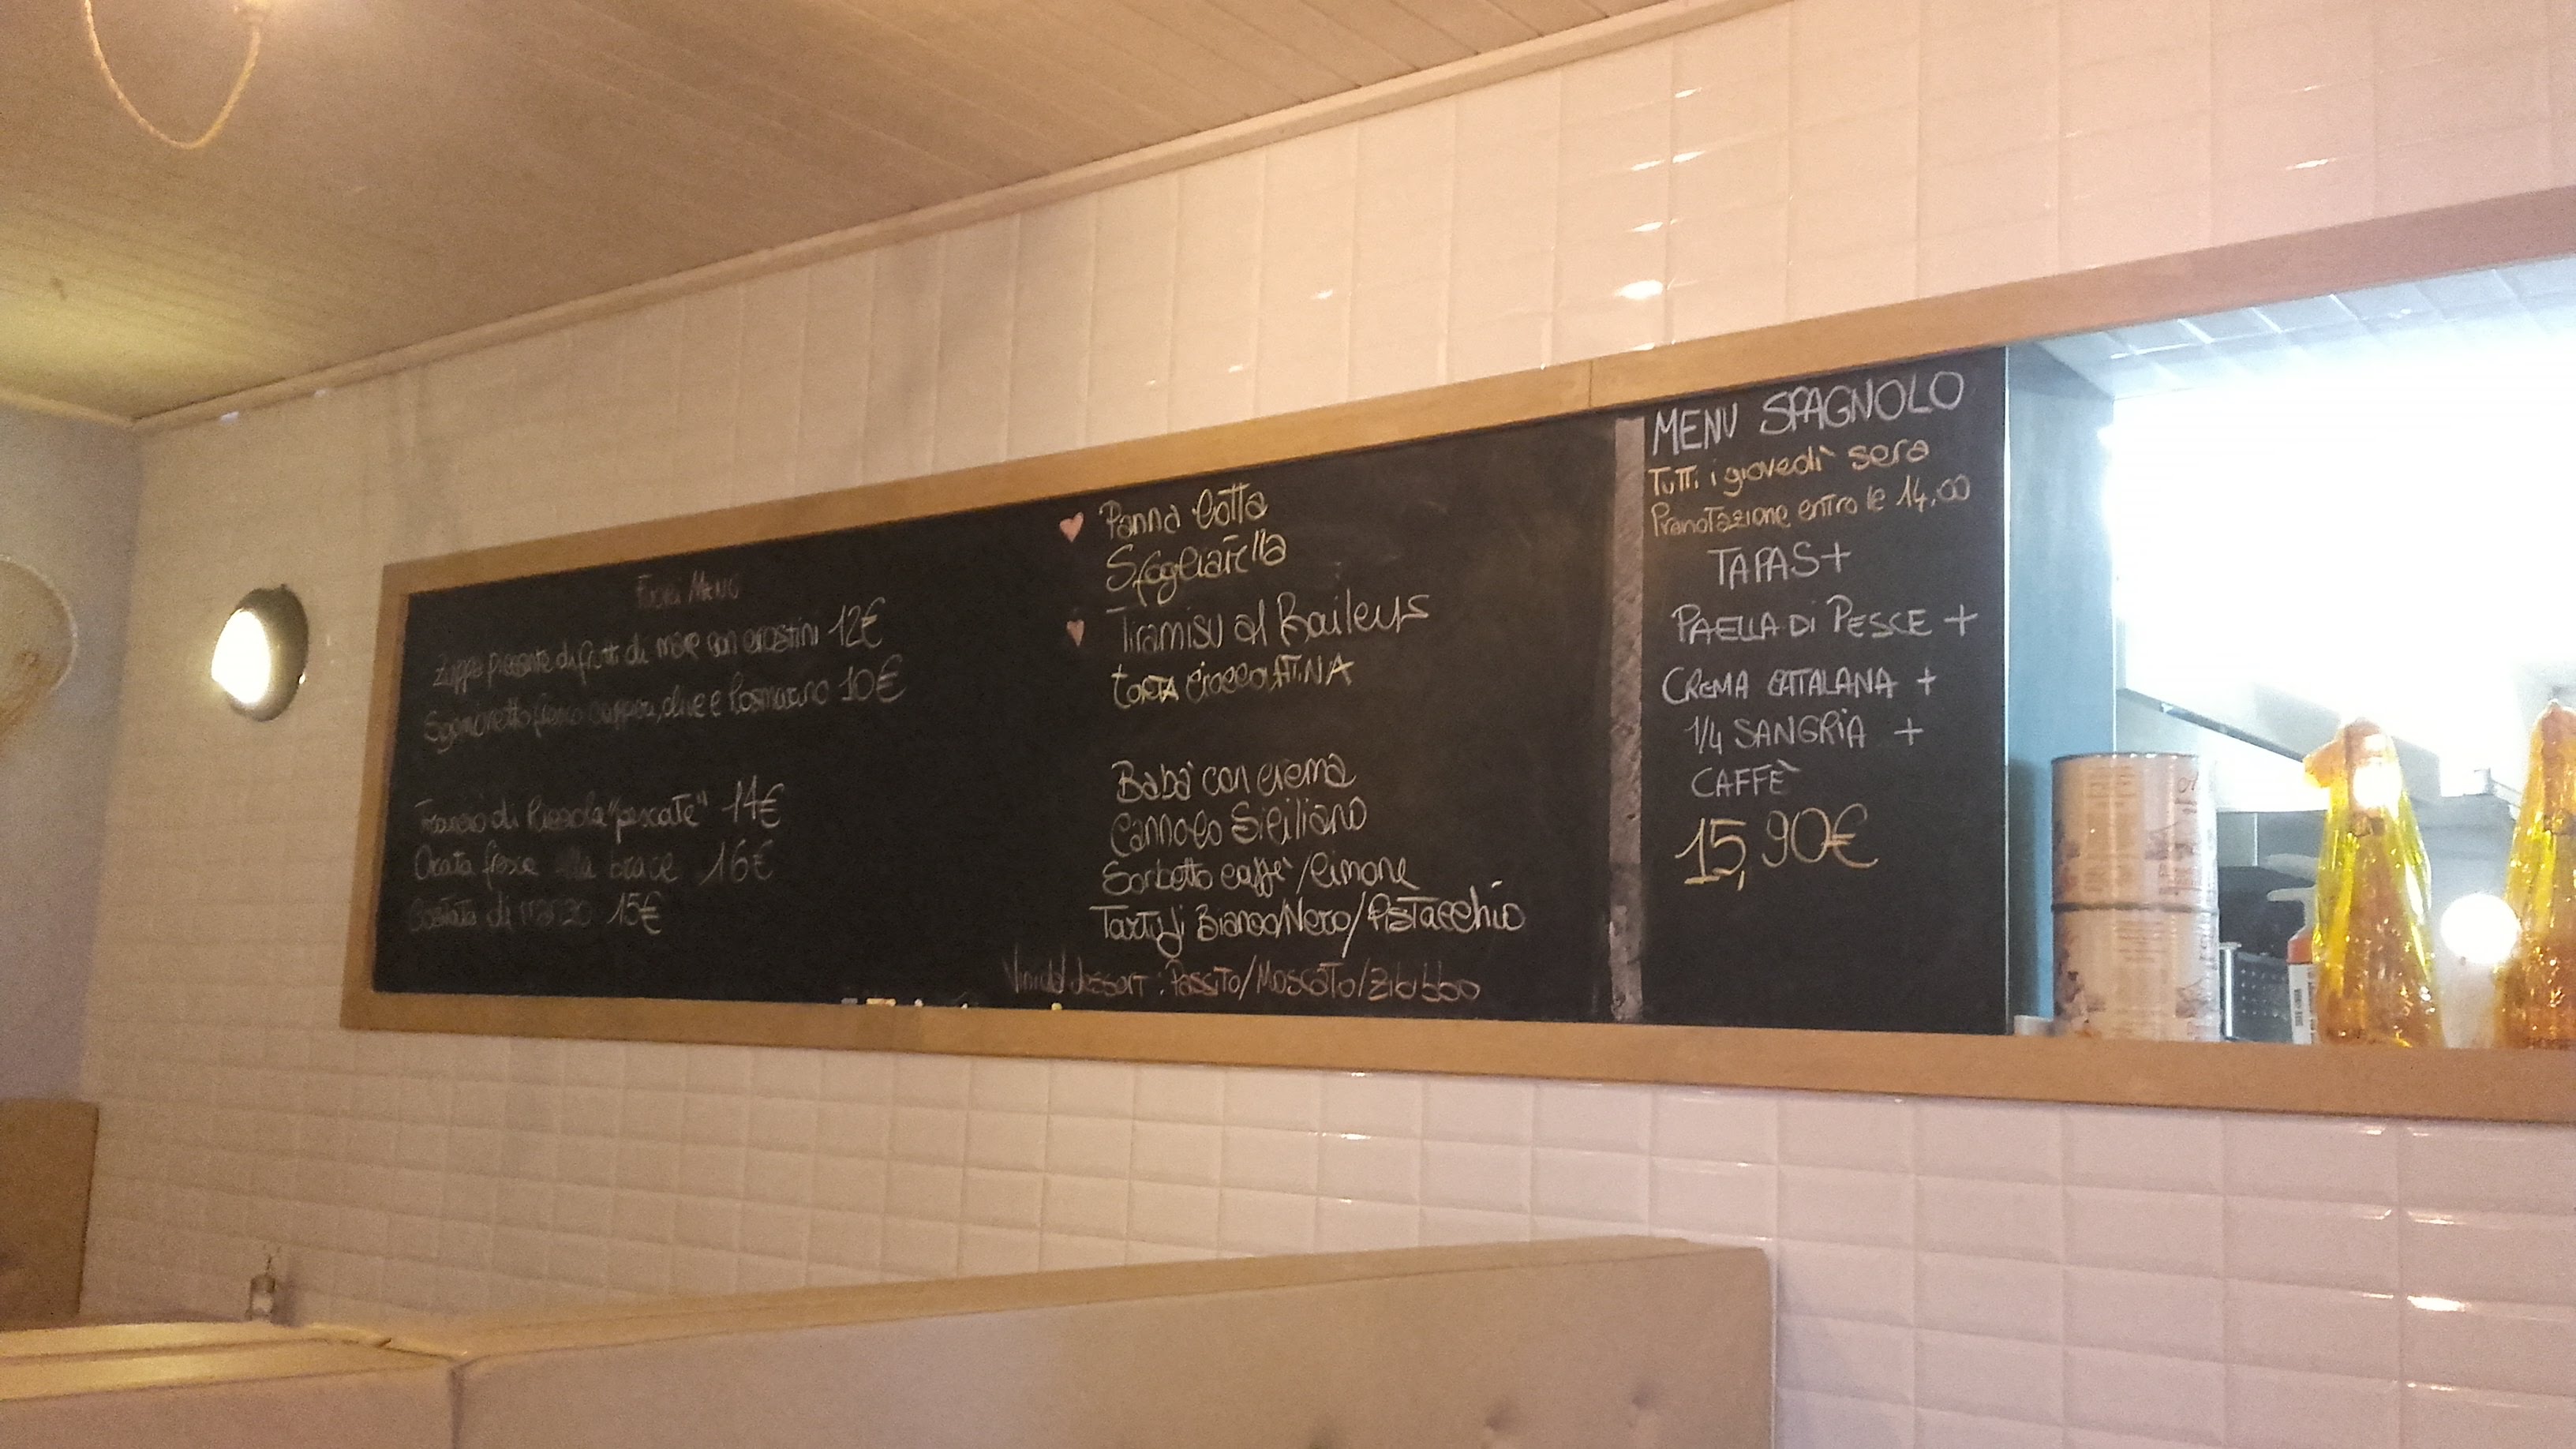 Fuori Menù
Zuppa piccante di frutti di mare con crostini 12€
Sgombretto fresco capperi, olive e Rosmarino 10€
Trancio di Ricciola "pescate" 14€
Orata fresca alla brace 16€
Costata di manzo 15€
Panna Cotta
Sfogliatella
Tiramisu al Baileys
TORTA CioccolATiNA
Babà con crema
Cannolo Siciliano
Sorbetto caffè/limone
Tartufi Bianco/Nero/Pistacchio
Vini da dessert: Passito/Moscato/Zibibbo
MENU SPAGNOLO
Tutti i giovedì sera
Prenotazione entro le 14,00
TAPAS+
PAELLA Di PESCE +
CREMA CATALANA +
1/4 SANGRiA +
CAFFÈ
15,90€